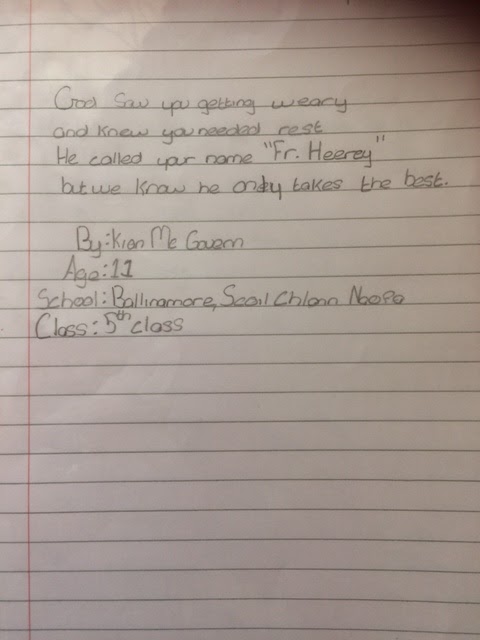 God saw you getting weary
and knew you needed rest
He called your name "Fr. Heerey"
but we know he only takes the best.
By: Kian Mc Govern
Age: 11
School: Ballinamore, Scoil Chlann Naofa
Class: 5th class